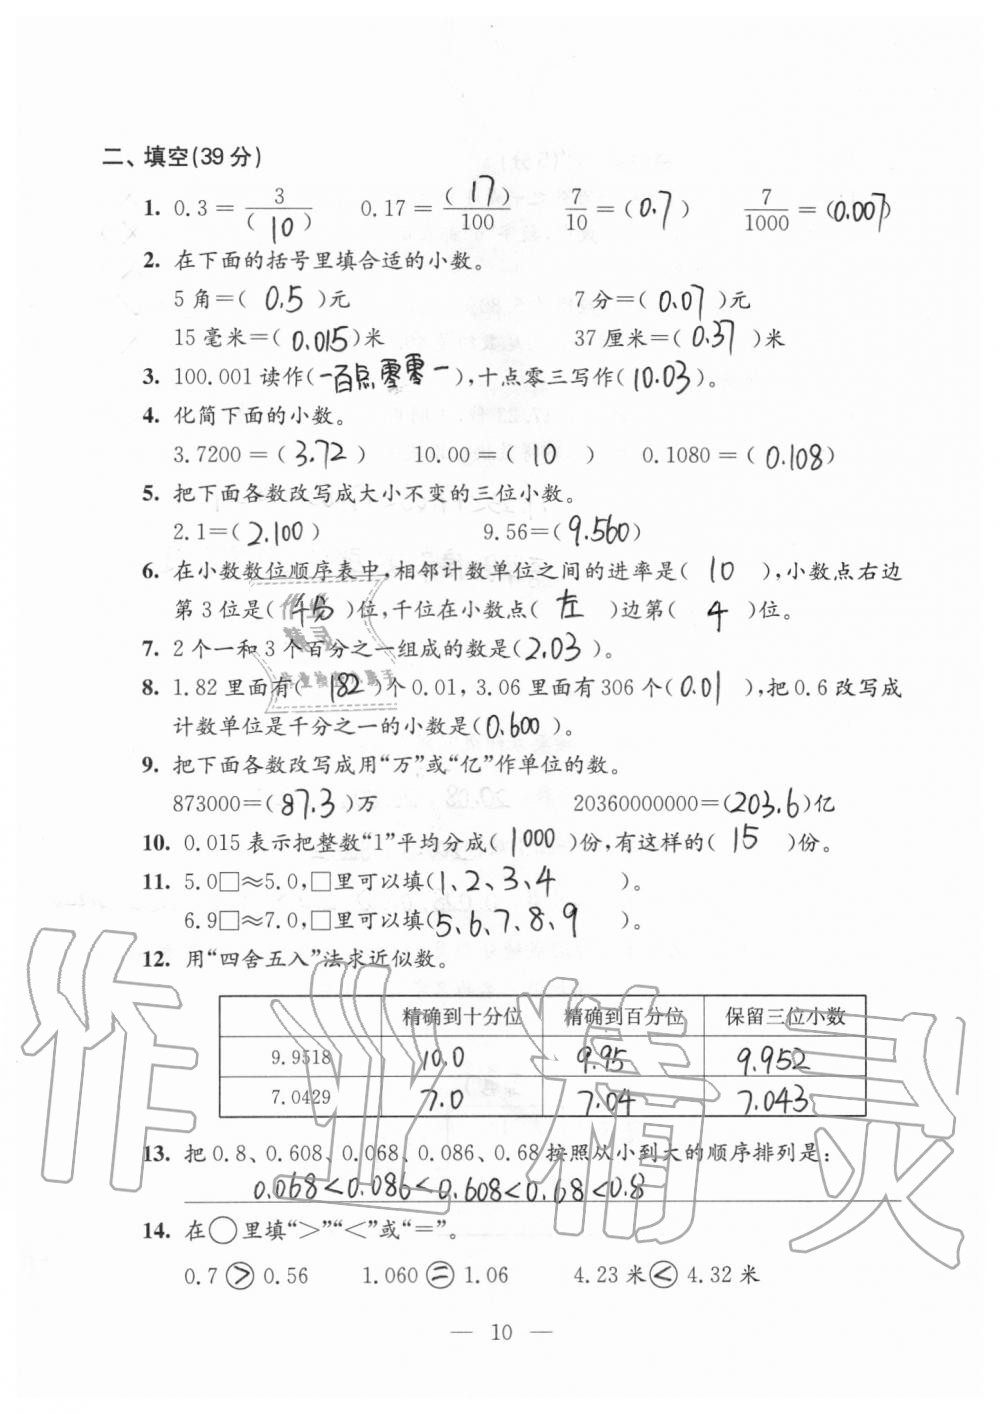 二、填空(39分)
1. 0.3=3/(10) 0.17=(17)/100 7/10=(0.7) 7/1000=(0.007)
2. 在下面的括号里填合适的小数。
5角=( 0.5 )元 7分=( 0.07 )元
15毫米=( 0.015 )米 37厘米=( 0.37 )米
3. 100.001读作(一百点零零一),十点零三写作(10.03)。
4. 化简下面的小数。
3.7200=( 3.72 ) 10.00=( 10 ) 0.1080=( 0.108)
5. 把下面各数改写成大小不变的三位小数。
2.1=( 2.100 ) 9.56=( 9.560)
6. 在小数数位顺序表中,相邻计数单位之间的进率是( 10 ),小数点右边
第3位是( 千分 )位,千位在小数点( 左 )边第( 4 )位。
7. 2个一和3个百分之一组成的数是(2.03)。
8. 1.82里面有( 182 )个0.01,3.06里面有306个(0.01 ),把0.6改写成
计数单位是千分之一的小数是(0.600 )。
9. 把下面各数改写成用“万”或“亿”作单位的数。
873000=( 87.3 )万 20360000000=(203.6)亿
10. 0.015表示把整数“1”平均分成( 1000 )份,有这样的( 15 )份。
11. 5.0□≈5.0,□里可以填(1、2、3、4 )。
6.9□≈7.0,□里可以填(5、6、7、8、9 )。
12. 用“四舍五入”法求近似数。
精确到十分位 精确到百分位 保留三位小数
9.9518 10.0 9.95 9.952
7.0429 7.0 7.04 7.043
13. 把0.8、0.608、0.068、0.086、0.68按照从小到大的顺序排列是:
0.068<0.086<0.608<0.68<0.8
14. 在○里填“>”“<”或“=”。
0.7 > 0.56 1.060 = 1.06 4.23米 < 4.32米
— 10 —
作业精灵